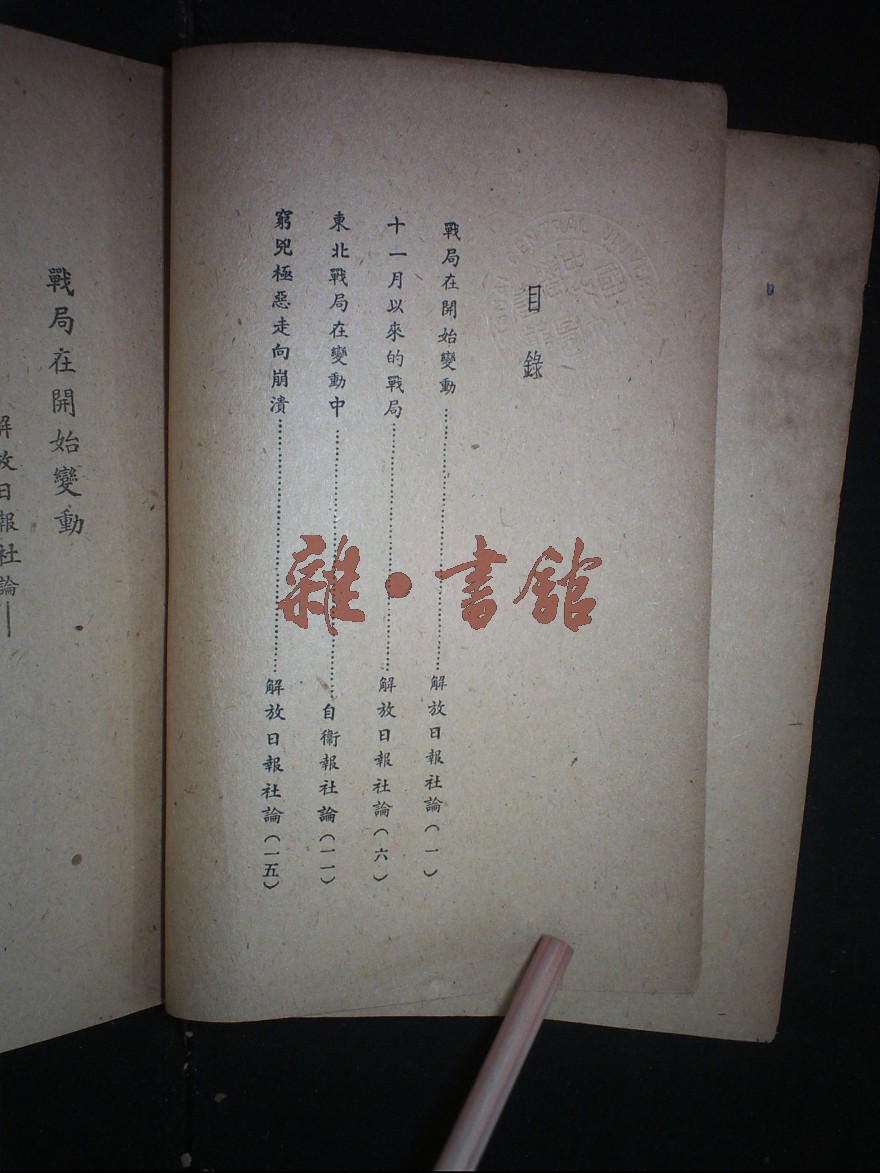 目錄
戰局在開始變動……解放日報社論(一)
十一月以來的戰局……解放日報社論(六)
東北戰局在變動中……自衞報社論(一一)
窮兇極惡走向崩潰……解放日報社論(一五)
戰局在開始變動
解放日報社論—
雜·書館
CENTRAL